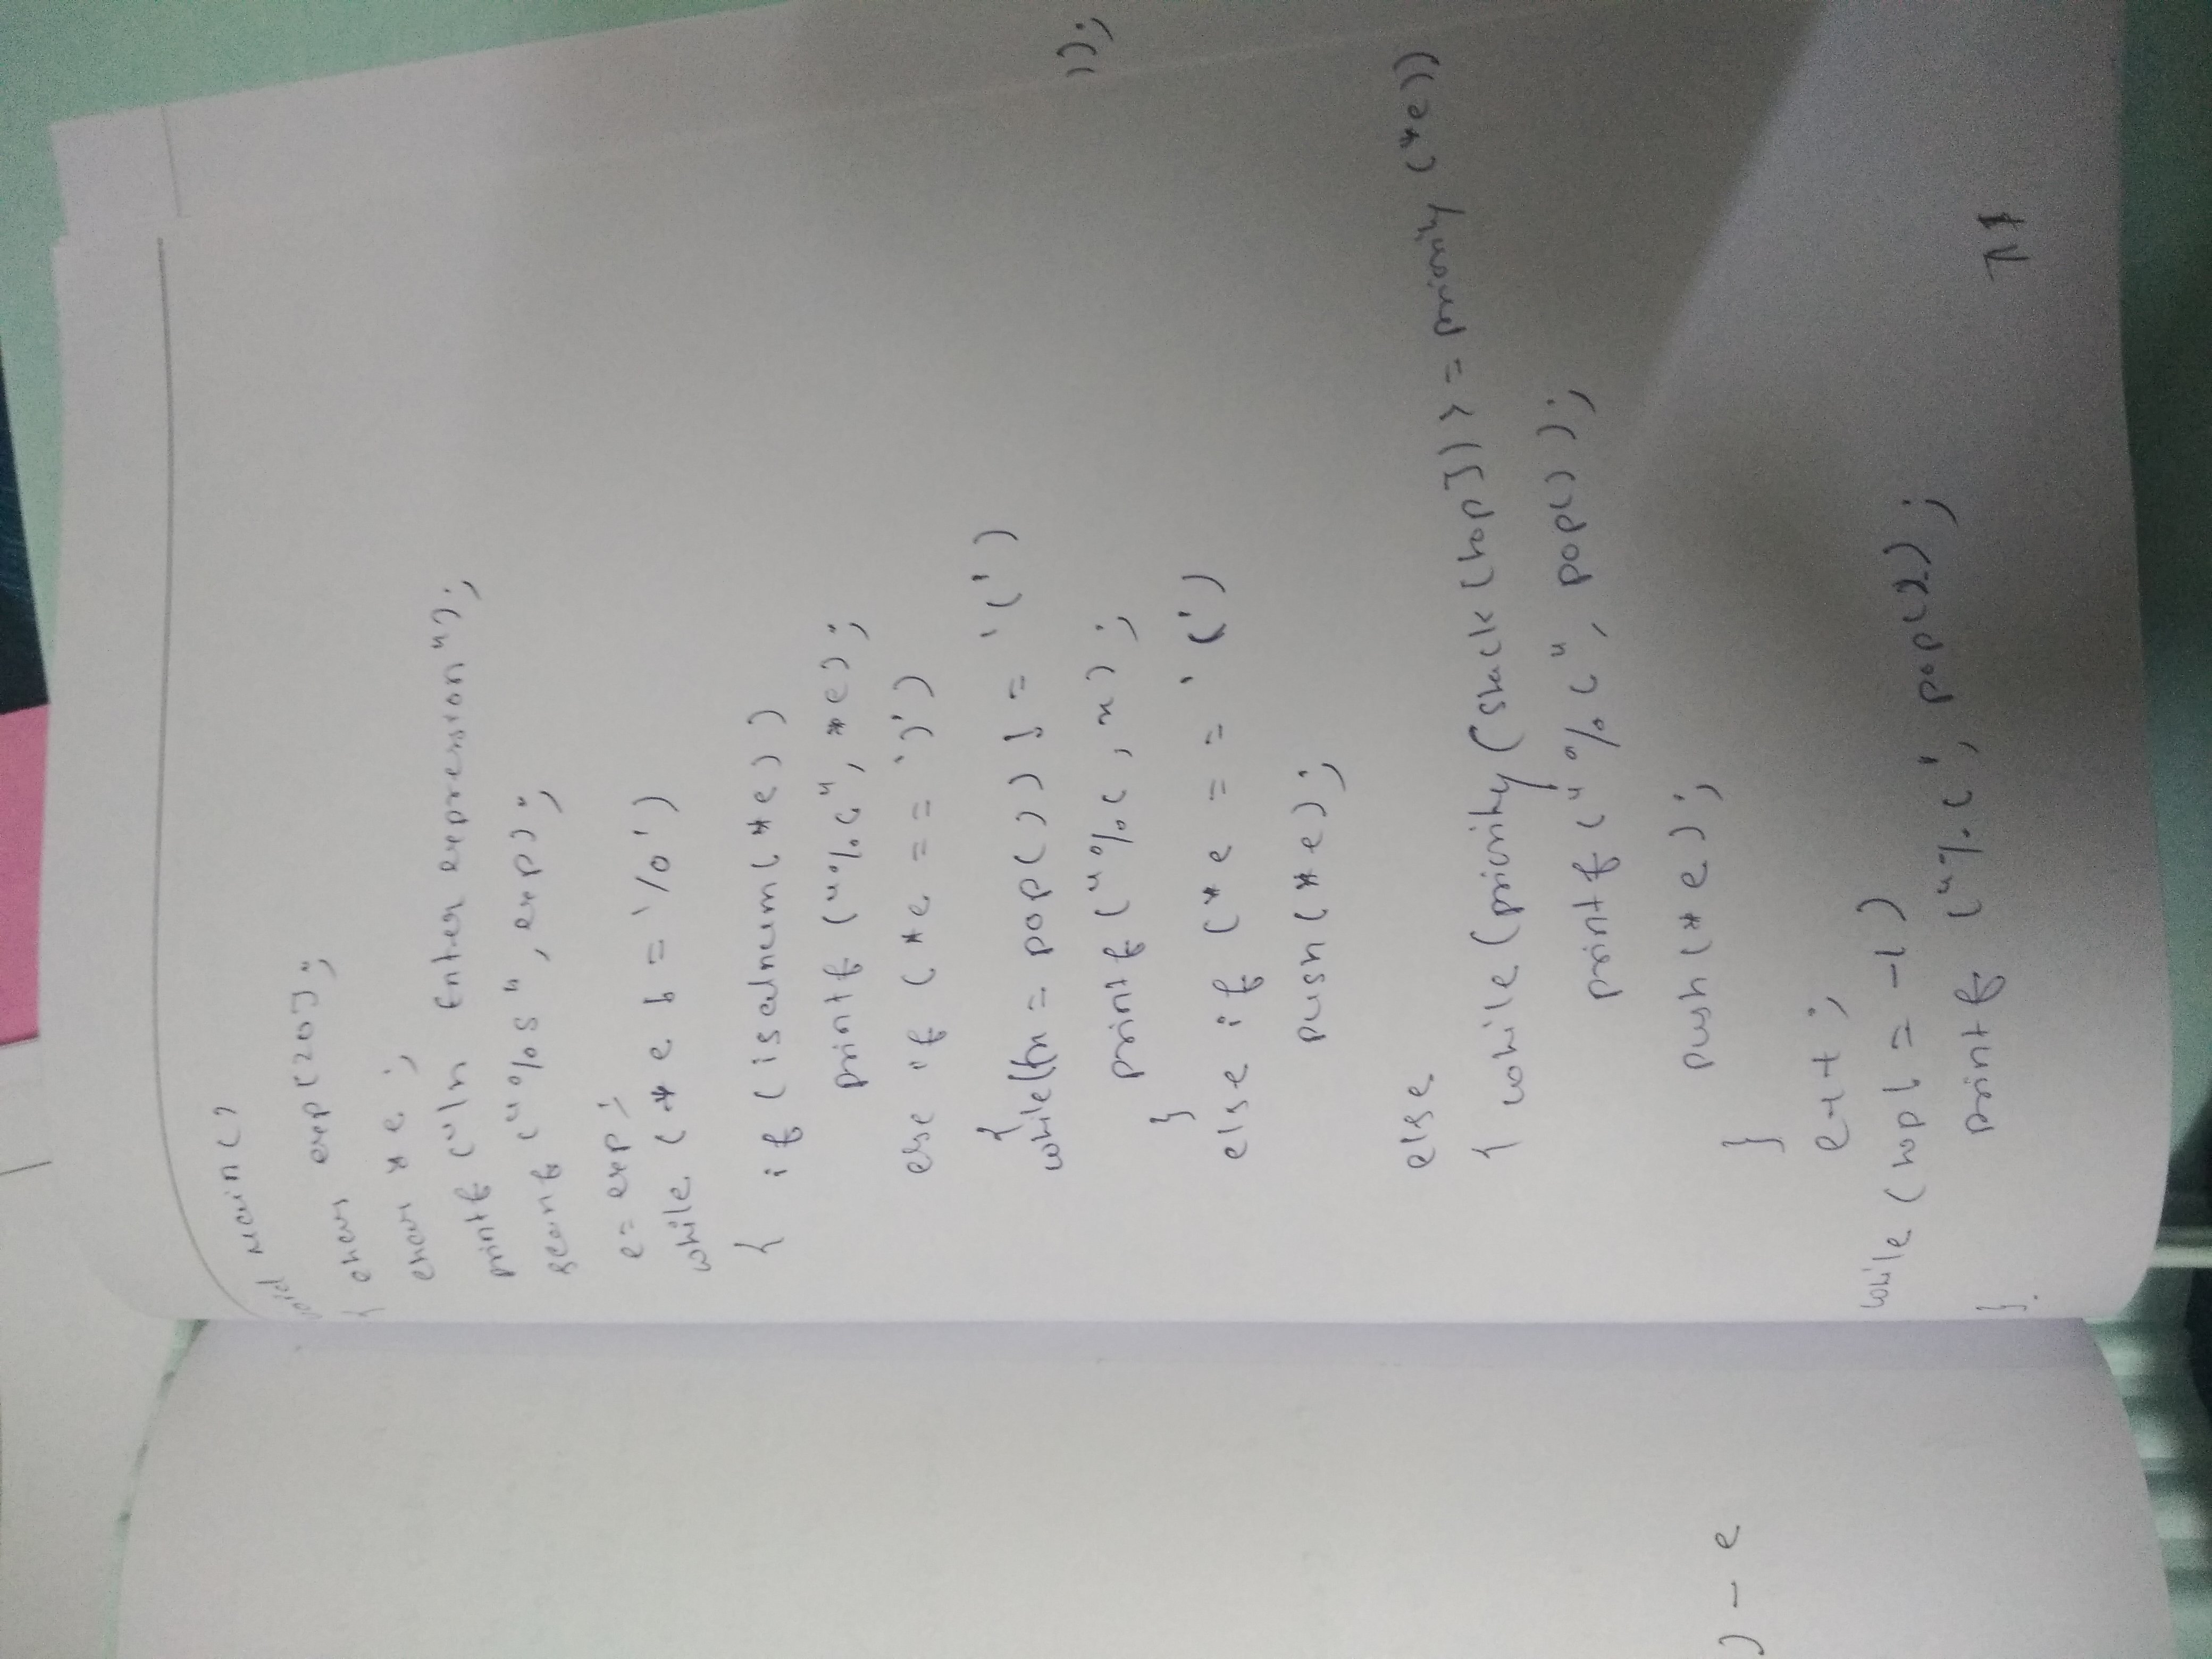 void main()
{ char exp[20];
char *e;
printf("\n Enter expression");
scanf("%s", exp);
e = exp;
while (*e != '\0')
{ if (isalnum(*e))
printf("%c", *e);
else if (*e == ')')
{
while((x = pop()) != '(')
printf("%c, x);
}
else if (*e == '(')
push(*e);
else
{ while (priority(stack[top]) >= priority (*e))
printf("%c", pop());
push(*e);
}
e++;
while (top != -1)
printf ("%c", pop());
}.
);
) - e